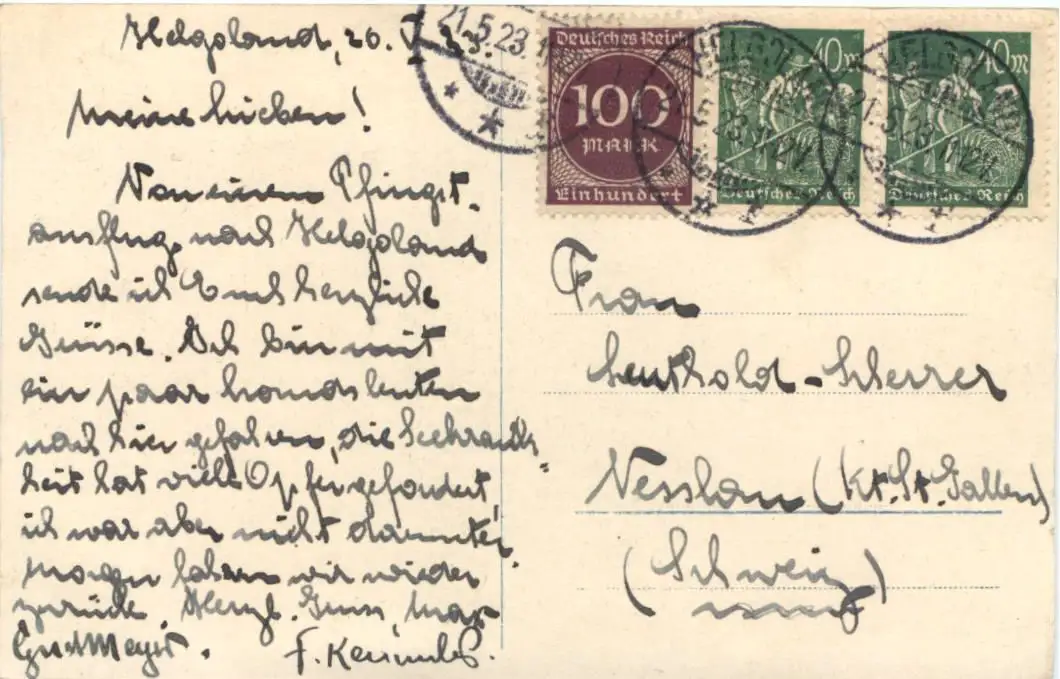 Helgoland, 20. V. 23.
Meine Lieben!
Von einem Pfingst-
ausflug nach Helgoland
sende ich Euch herzliche
Grüsse. Ich bin mit
ein paar Landsleuten
nach hier gefahren, die Seekrank-
heit hat viele Opfer gefordert
ich war aber nicht darunter.
Morgen fahren wir wieder
zurück. Herzl. Gruss, Max
Gust Meyer. F.
21.5.23.
Deutsches Reich
100
MARK
Einhundert
40 m
Deutsches Reich
40 m
Deutsches Reich
HELGOLAND
21.5.23.11-12V.
* *
HELGOLAND
21.5.23.11-12V.
* *
Frau
Leuthold-Scherrer
Nesslau (Kt. St. Gallen)
(Schweiz)